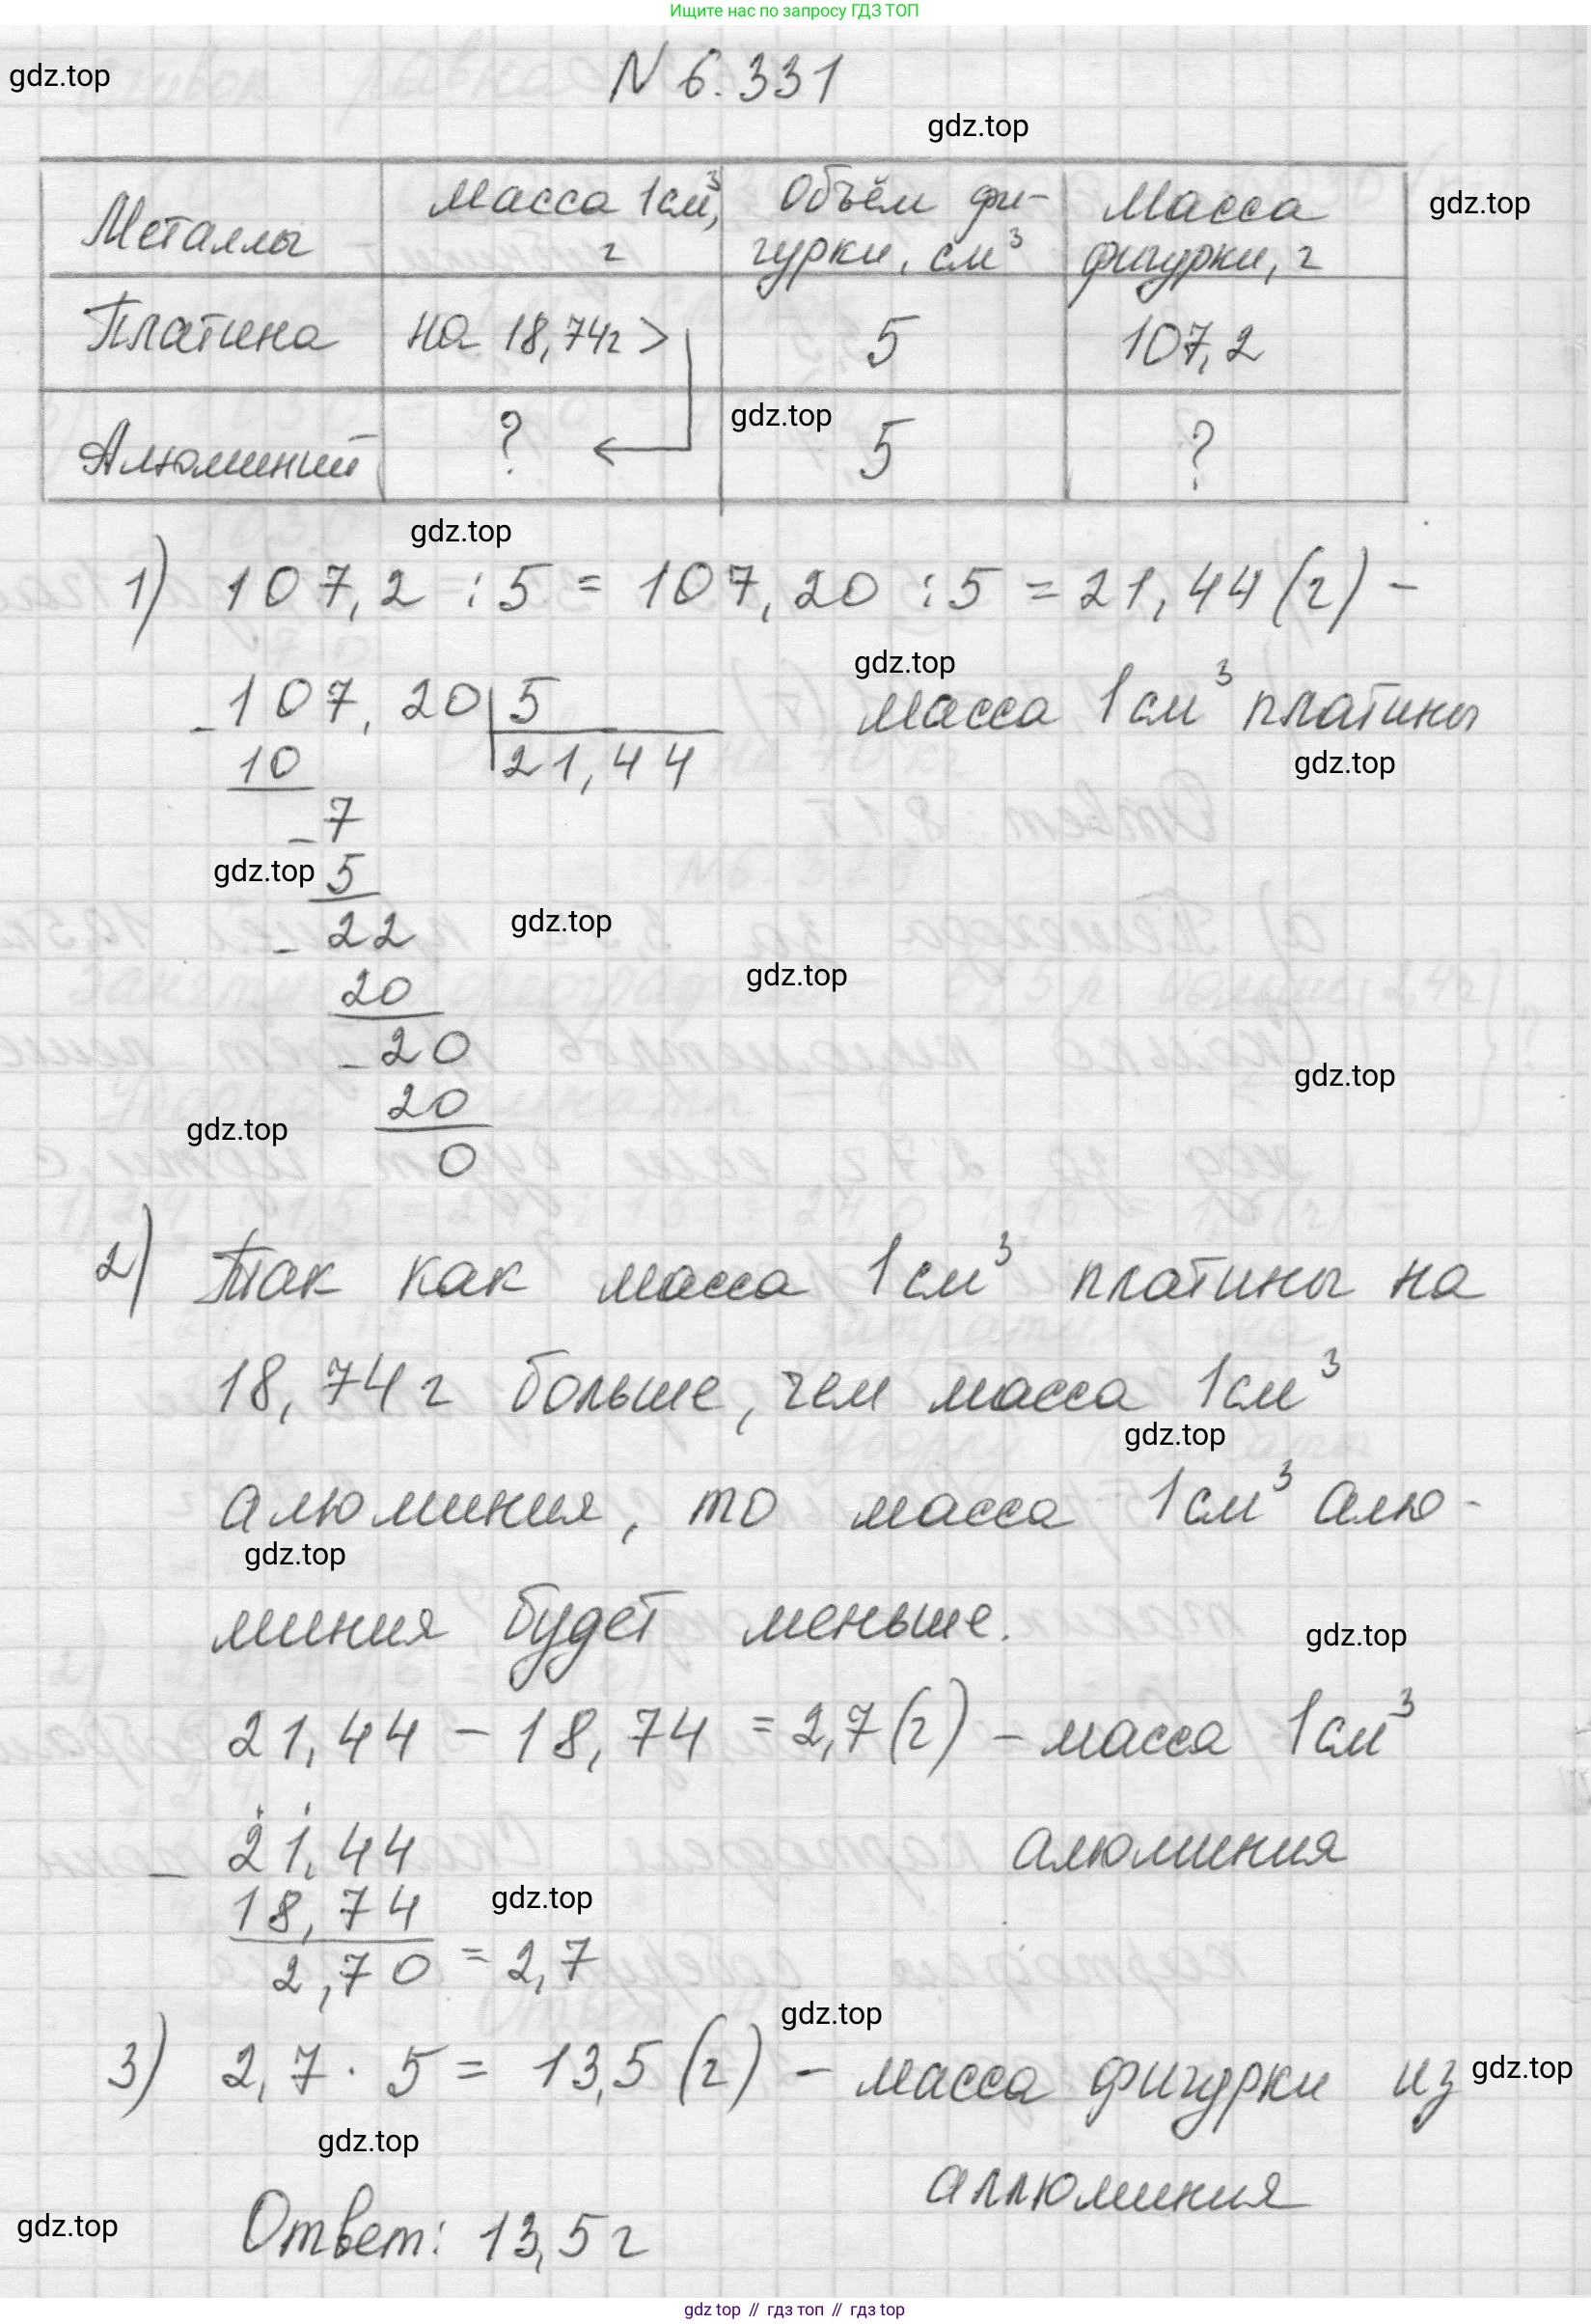 Ищите нас по запросу ГДЗ ТОП
N 6.331
gdz.top
gdz.top
Металлы
масса 1см³, г
Объём фи-
гурки, см³
Масса
фигурки, г
gdz.top
Платина на 18,74г > 5 107,2
gdz.top
Алюминий ? 5 ?
gdz.top
1) 107,2 : 5 = 107,20 : 5 = 21,44 (г) -
gdz.top
масса 1см³ платины
107,20 5
- 10 21,44
gdz.top
- 7
gdz.top 5
gdz.top
- 22
gdz.top
20
- 20
gdz.top
20
gdz.top
0
2) Так как масса 1см³ платины на
18,74г больше, чем масса 1см³
gdz.top
алюминия, то масса 1см³ алю-
gdz.top
миния будет меньше.
gdz.top
21,44 - 18,74 = 2,7 (г) - масса 1см³
алюминия
- 21,44
18,74
gdz.top
2,70 = 2,7
gdz.top
3) 2,7 · 5 = 13,5 (г) - масса фигурки из
gdz.top
gdz.top
аллюминия
gdz.top
Ответ: 13,5 г
gdz top // гдз топ // gdz top